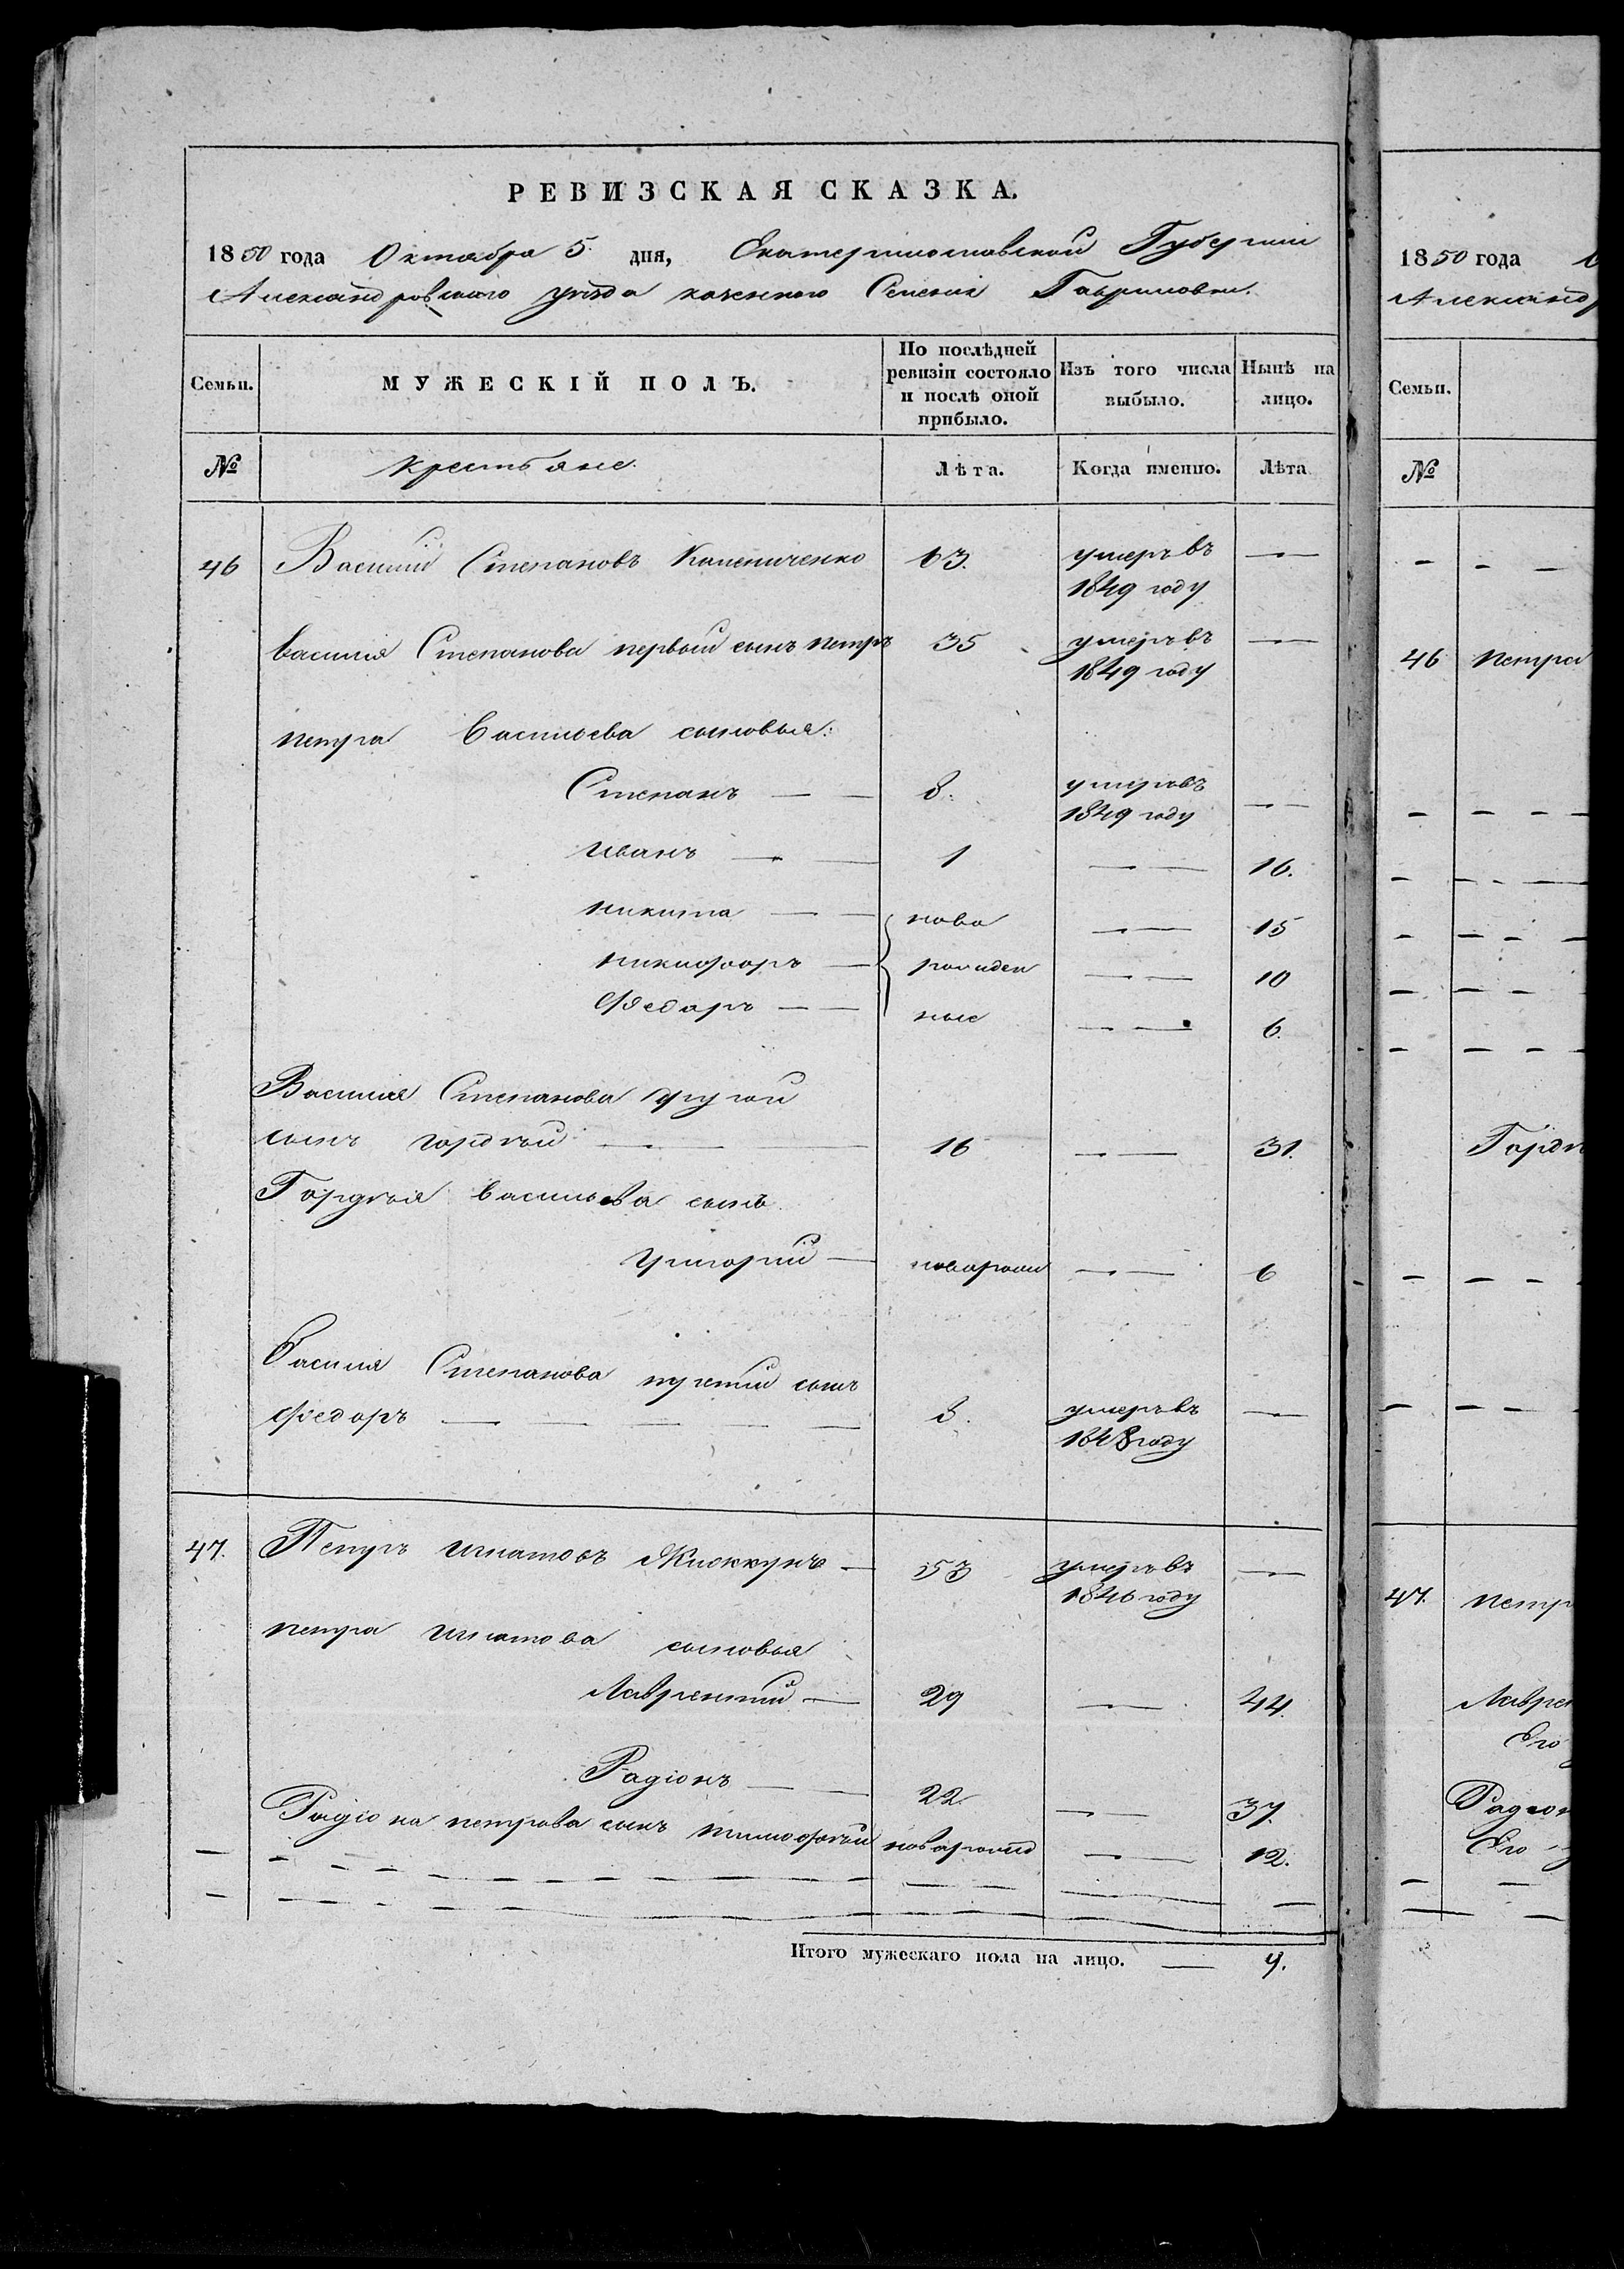 РЕВИЗСКАЯ СКАЗКА.
1850 года Октября 5 дня, Екатеринославской Губернии
Александровского уезда казенного Селения Гавриловки.
Семьи.
МУЖЕСКІЙ ПОЛЪ.
По послѣдней ревизіи состояло и послѣ оной прибыло.
Изъ того числа выбыло.
Нынѣ на лицо.
№ крестьяне. Лѣта. Когда именно. Лѣта
46 Василий Степановъ 63. умеръ въ —
1849 году
василия Степанова первый сынъ петръ 35 умеръ въ —
1849 году
петра Васильева сыновья:
Степанъ — — 8. умеръ въ
1849 году — —
иванъ — — 1 — — 16.
никита — — ново — — 15
никифоръ — рожден — — 10
Федоръ — — ные — — 6.
Василия Степанова другой
сынъ гордѣй — — 16 — — 31.
Гордѣя васильева сынъ
григорий — новорожд — — 6
Василия Степанова третий сынъ
Федоръ — — — — — 3. умеръ въ —
1848 году
47. Петръ игнатовъ — 53 умеръ въ —
1846 году
петра игнатова сыновья
Лаврентий — 29 — — 44.
Радіонъ — — 22. — — 37.
Радіона петрова сынъ тимофѣй новорожд — — 12.
Итого мужескаго пола на лицо. — 9.
1850 года
Александр
Семьи.
№
46 петра
Гордѣ
47. петр
Лаврен
Его
Радион
Его